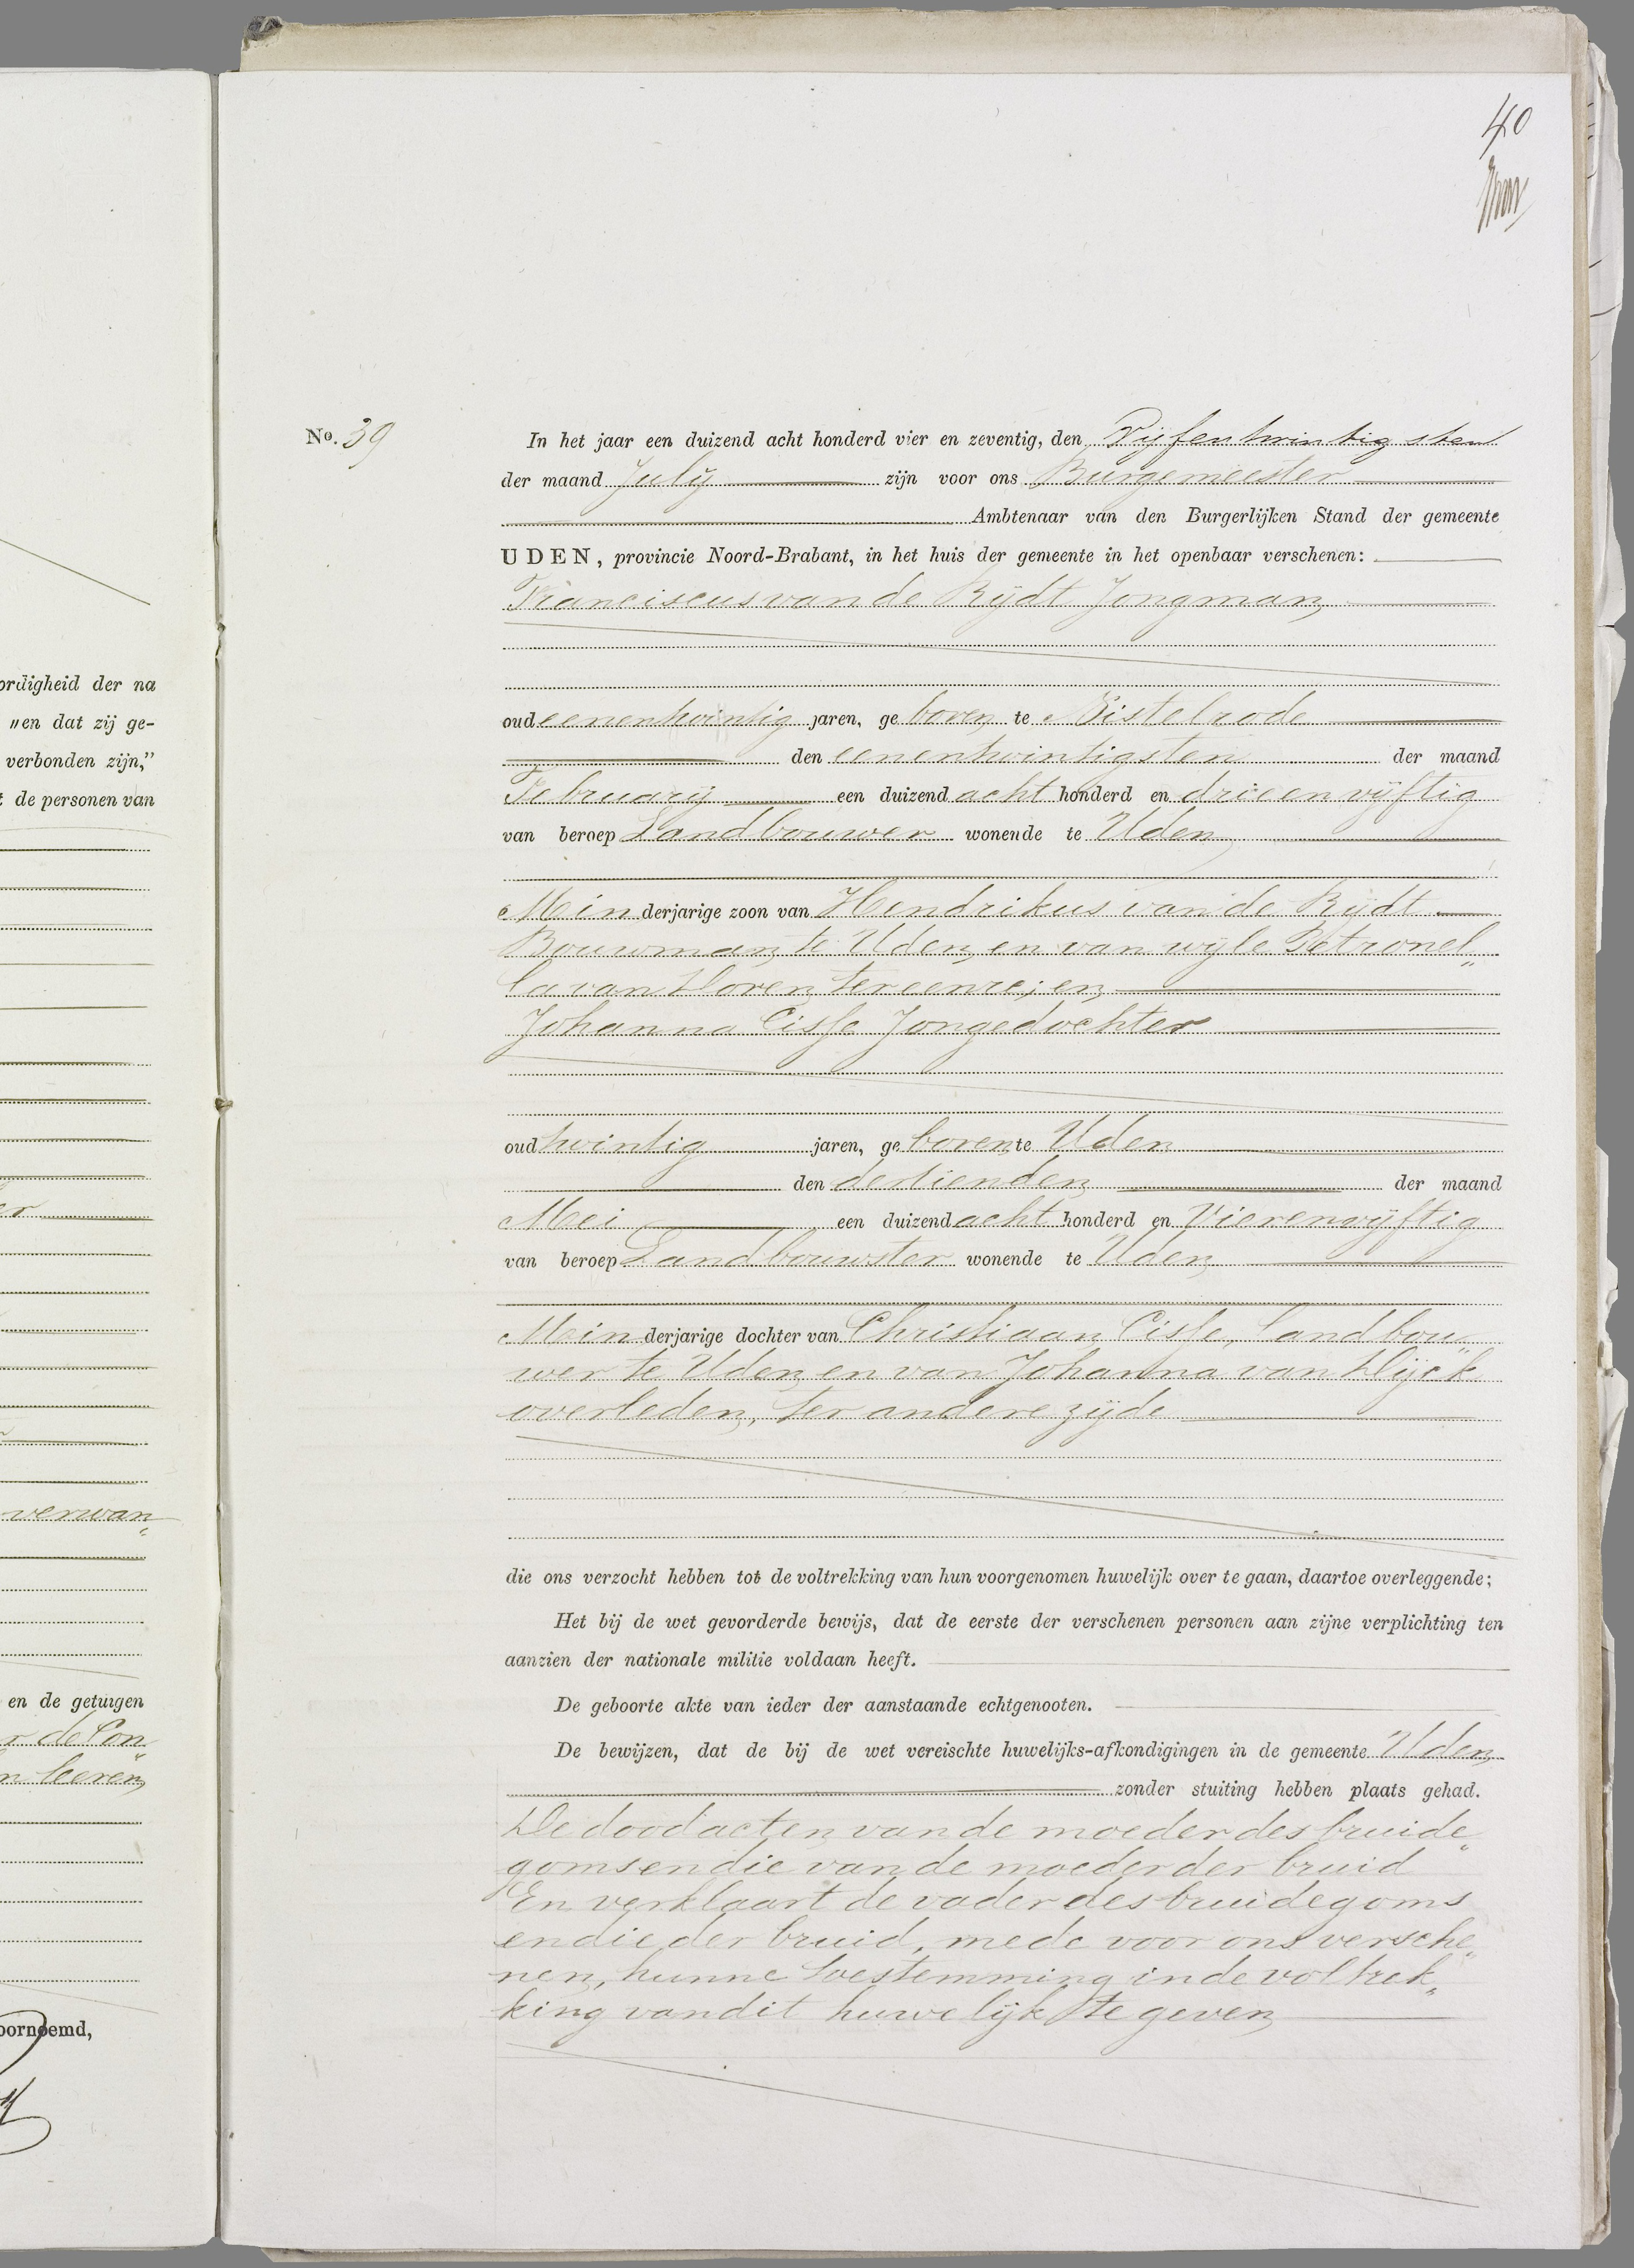 40
No. 39
In het jaar een duizend acht honderd vier en zeventig, den Vijfentwintigsten
der maand July zijn voor ons Burgemeester
Ambtenaar van den Burgerlijken Stand der gemeente
UDEN, provincie Noord-Brabant, in het huis der gemeente in het openbaar verschenen:
Franciscus van de Rijdt Jongman,
oud eenentwintig jaren, geboren te Nistelrode
den eenentwintigsten der maand
February een duizend acht honderd en drieenvijftig
van beroep Landbouwer wonende te Uden,
Minderjarige zoon van Hendrikus van de Rijdt
Bouwman, te Uden, en van wijle Petronel„
la van Doren, ter eenre; en,
Johanna Cisse Jongedochter
oud twintig jaren, geboren te Uden
den dertienden der maand
Mei een duizend acht honderd en Vierenvijftig
van beroep Landbouwster wonende te Uden,
Minderjarige dochter van Christiaan Cisse, landbou„
wer te Uden, en van Johanna van Dijck
overleden, ter andere zijde
die ons verzocht hebben tot de voltrekking van hun voorgenomen huwelijk over te gaan, daartoe overleggende;
Het bij de wet gevorderde bewijs, dat de eerste der verschenen personen aan zijne verplichting ten
aanzien der nationale militie voldaan heeft.
De geboorte akte van ieder der aanstaande echtgenooten.
De bewijzen, dat de bij de wet vereischte huwelijks-afkondigingen in de gemeente Uden,
zonder stuiting hebben plaats gehad.
De doodacten van de moeder des bruide„
goms en die van de moeder der bruid
En verklaart de vader des bruidegoms
en die der bruid, mede voor ons versche„
nen, hunne toestemming in de voltrek„
king van dit huwelijk te geven,
ordigheid der na
„en dat zij ge-
verbonden zijn,"
de personen van
verwan„
en de getuigen
oornoemd,